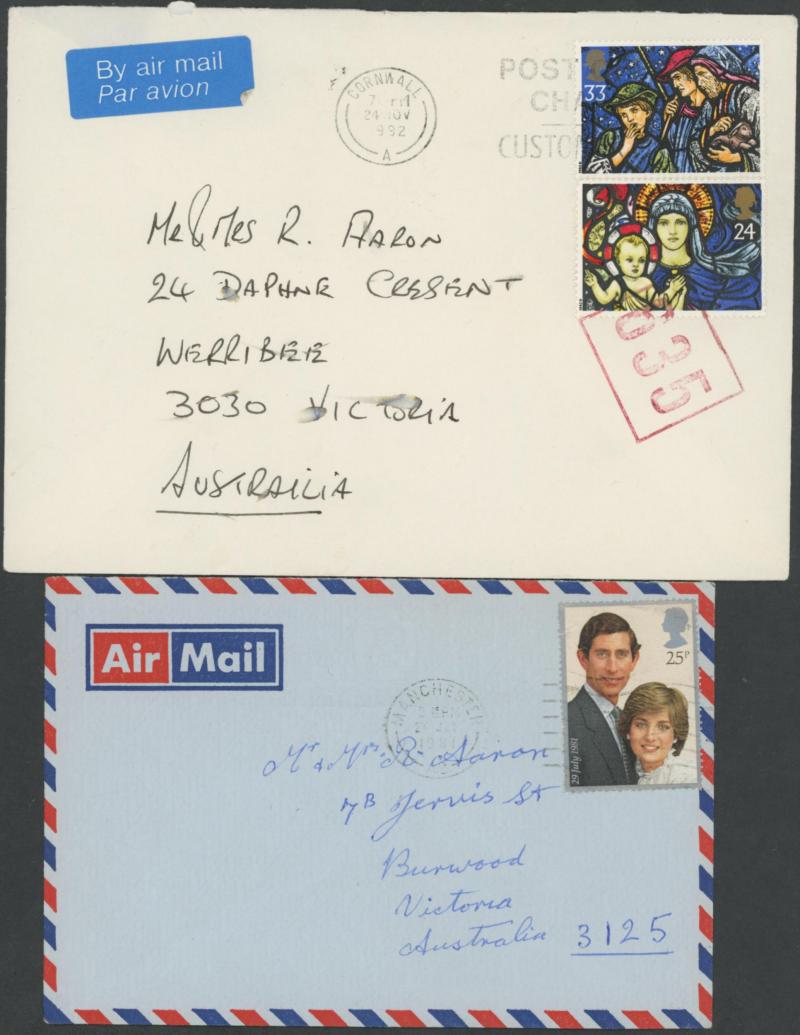 By air mail
Par avion
CORNWALL
24 NOV
A
POST
CHA
CUSTO
33
24
Mr & Mrs R. Aaron
24 Daphne Cresent
Werribee
3030 Victoria
Austrailia
635
Air Mail
MANCHESTER
25P
29 July 1981
Mr & Mrs. R. Aaron
7B Jervis St
Burwood
Victoria
Australia 3125